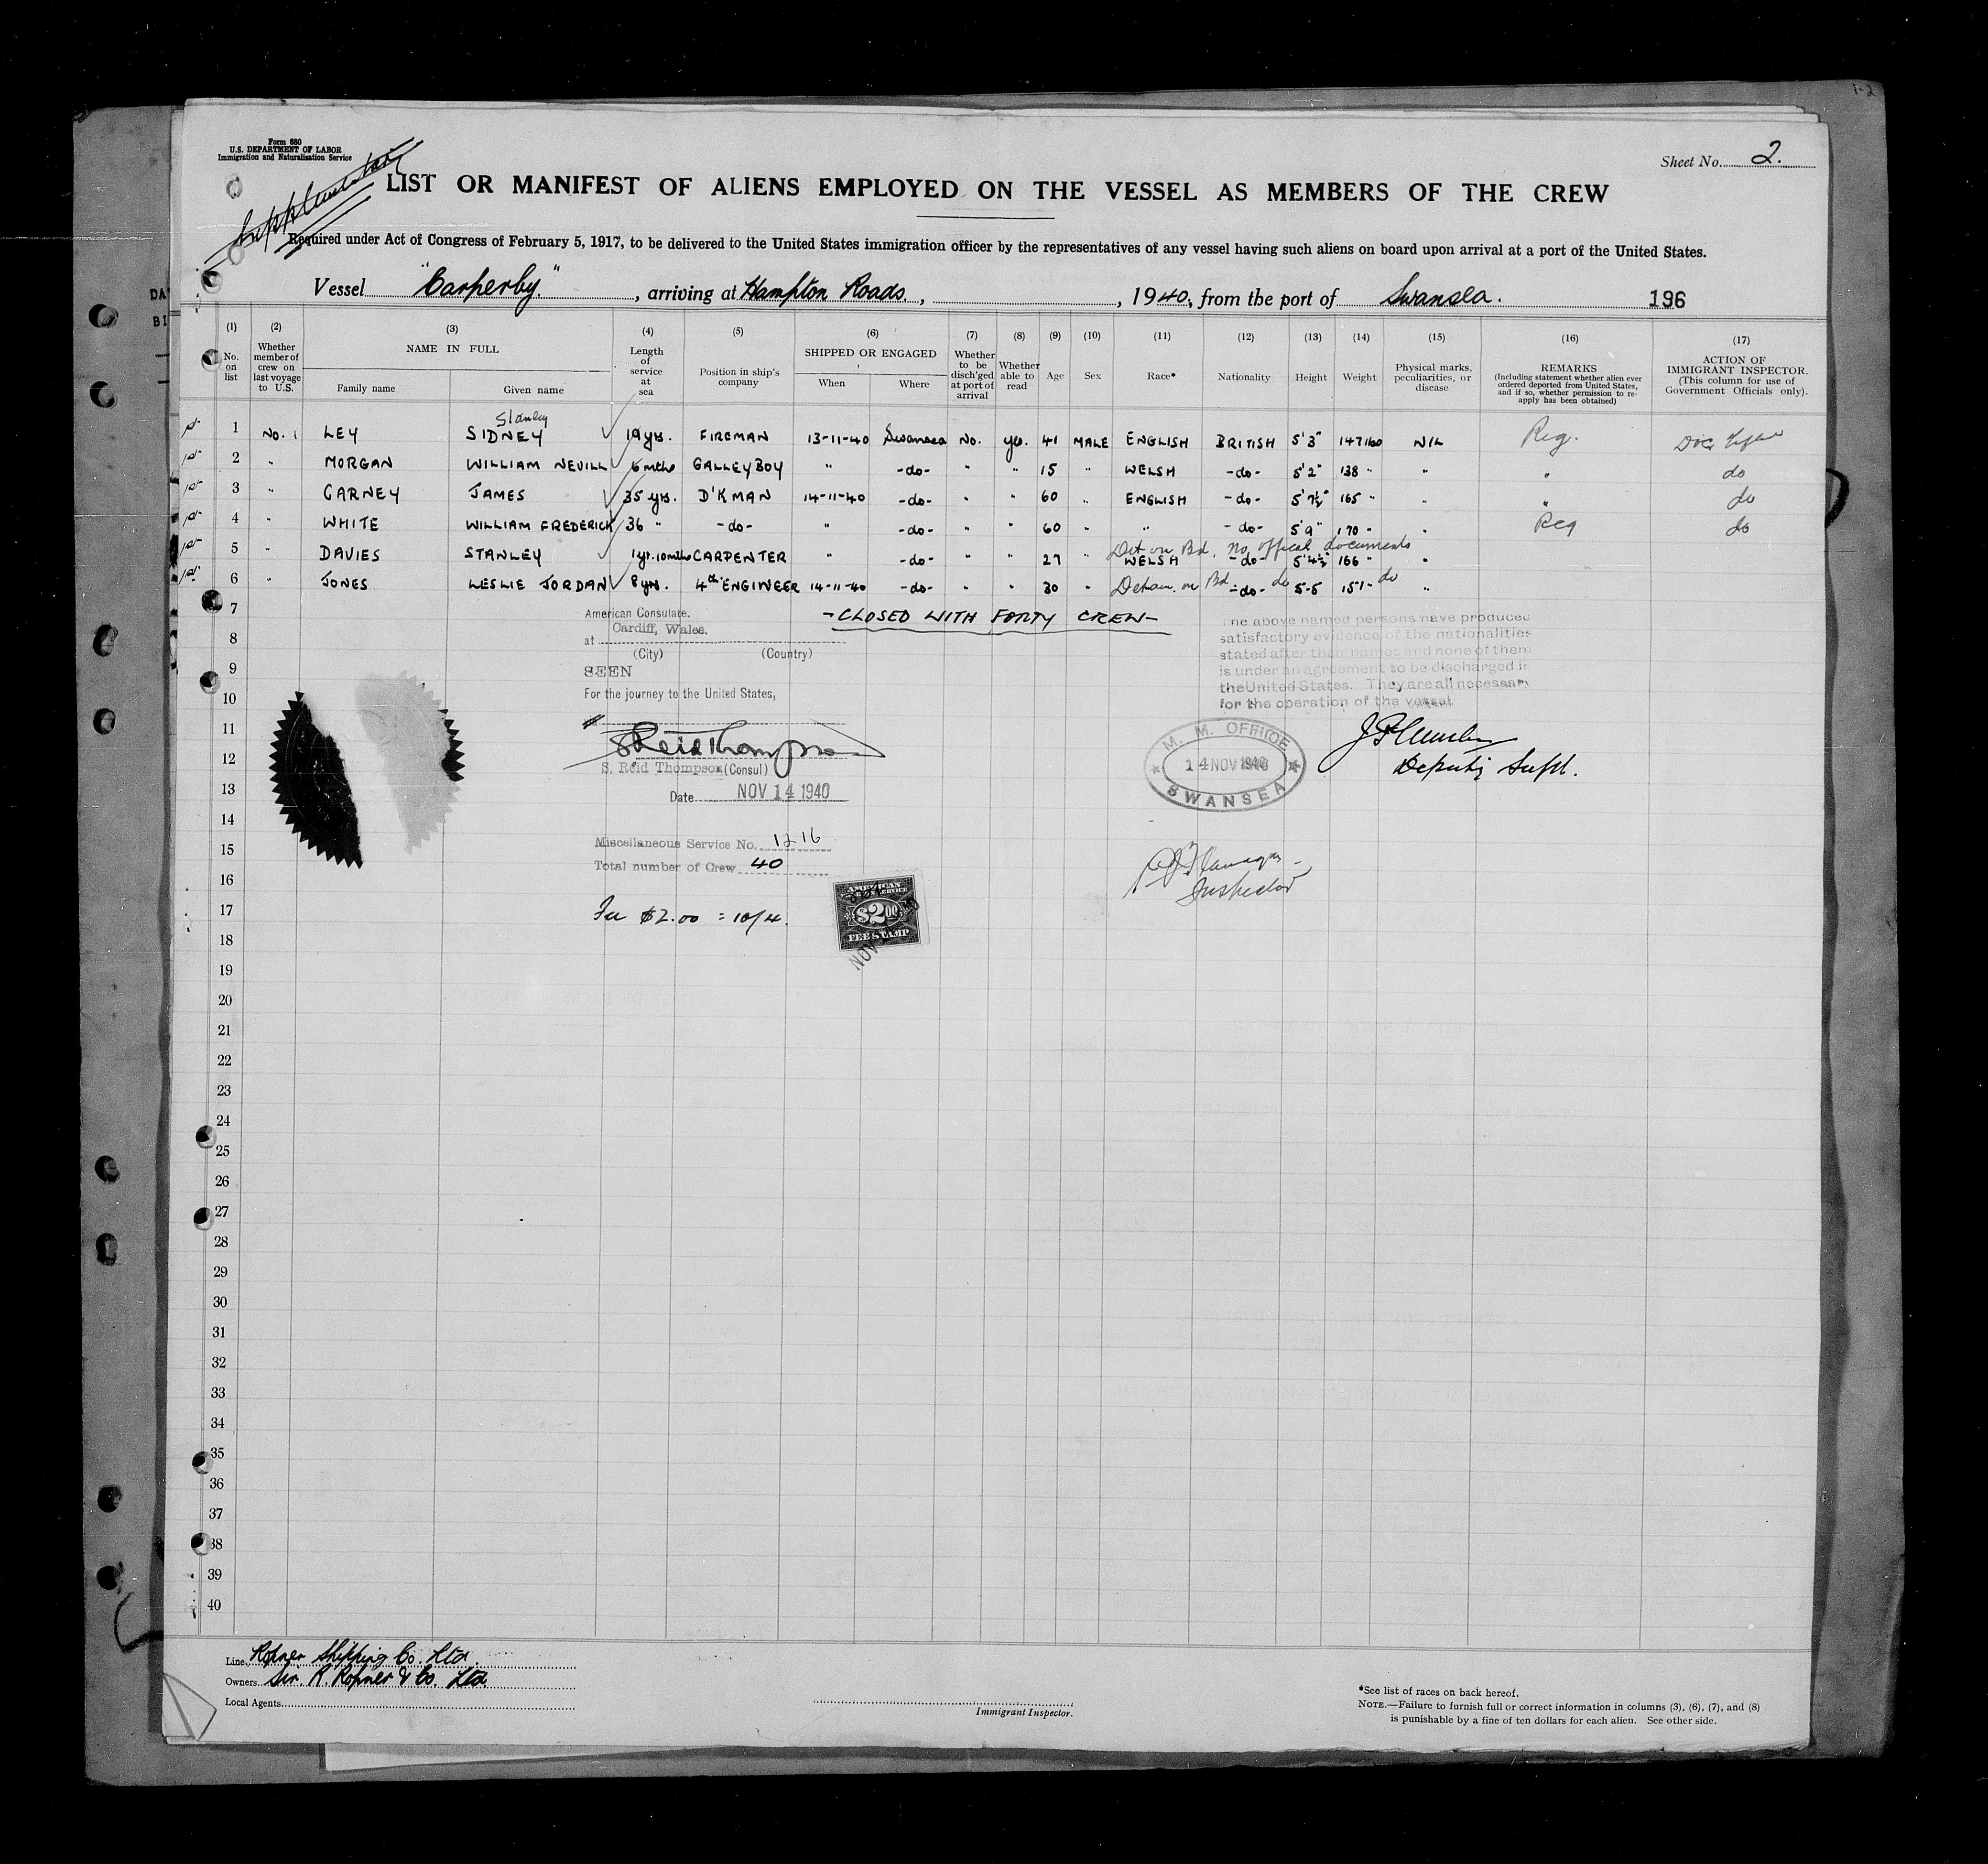 1-2
Form 680
U.S. DEPARTMENT OF LABOR
Immigration and Naturalization Service
Sheet No. 2.
Supplementary
LIST OR MANIFEST OF ALIENS EMPLOYED ON THE VESSEL AS MEMBERS OF THE CREW
Required under Act of Congress of February 5, 1917, to be delivered to the United States immigration officer by the representatives of any vessel having such aliens on board upon arrival at a port of the United States.
Vessel "Carperby." , arriving at Hampton Roads. , , 1940, from the port of Swansea. 196
(1) (2) (3) (4) (5) (6) (7) (8) (9) (10) (11) (12) (13) (14) (15) (16) (17)
No. on list
Whether member of crew on last voyage to U.S.
NAME IN FULL
Family name Given name
Length of service at sea
Position in ship's company
SHIPPED OR ENGAGED
When Where
Whether to be disch'ged at port of arrival
Whether able to read
Age
Sex
Race*
Nationality
Height
Weight
Physical marks, peculiarities, or disease
REMARKS
(Including statement whether alien ever ordered deported from United States, and if so, whether permission to re-apply has been obtained)
ACTION OF IMMIGRANT INSPECTOR.
(This column for use of Government Officials only).
Stanley
1 No. LEY SIDNEY 19 yrs. FIREMAN 13-11-40 Swansea No. yes. 41 MALE ENGLISH BRITISH 5'3" 147 lbs NIL Reg.
2 " MORGAN WILLIAM NEVILL 6 mths GALLEY BOY " -do- " " 15 " WELSH -do- 5'2" 138 " " " do
3 " CARNEY JAMES 35 yrs. D'KMAN 14-11-40 -do- " " 60 " ENGLISH -do- 5'7½" 165 " " " do
4 " WHITE WILLIAM FREDERICK 36 " -do- " -do- " " 60 " " -do- 5'9" 170 " " Reg do
Det on Bd. No offical documents
5 " DAVIES STANLEY 1 yr. 10 mths CARPENTER " -do- " " 27 " WELSH -do- 5'4½" 166 " "
6 " JONES LESLIE JORDAN 8 yrs. 4th ENGINEER 14-11-40 -do- " " 30 " Detain on Bd -do- do 5-5 151- do "
7 -CLOSED WITH FORTY CREW-
8
9
10
11
12
13
14
15
16
17
18
19
20
21
22
23
24
25
26
27
28
29
30
31
32
33
34
35
36
37
38
39
40
American Consulate.
at Cardiff, Wales.
(City) (Country)
SEEN
For the journey to the United States,
S Reid Thompson
S. Reid Thompson (Consul)
Date NOV 14 1940
Miscellaneous Service No. 1216
Total number of Crew 40
Fee $2.00 = 10/4.
AMERICAN
SERVICE
$2.00
FEE STAMP
NOV
The above named persons have produced
satisfactory evidence of the nationalities
stated after their names and none of them
is under an agreement to be discharged in
the United States. They are all necessary
for the operation of the vessel.
M. M. OFFICE
14 NOV 1940
SWANSEA
Deputy Supt.
Inspector
Line Ropner Shipping Co. Ltd.
Owners Sir. R. Ropner & Co. Ltd.
Local Agents
Immigrant Inspector.
*See list of races on back hereof.
NOTE.—Failure to furnish full or correct information in columns (3), (6), (7), and (8)
is punishable by a fine of ten dollars for each alien. See other side.